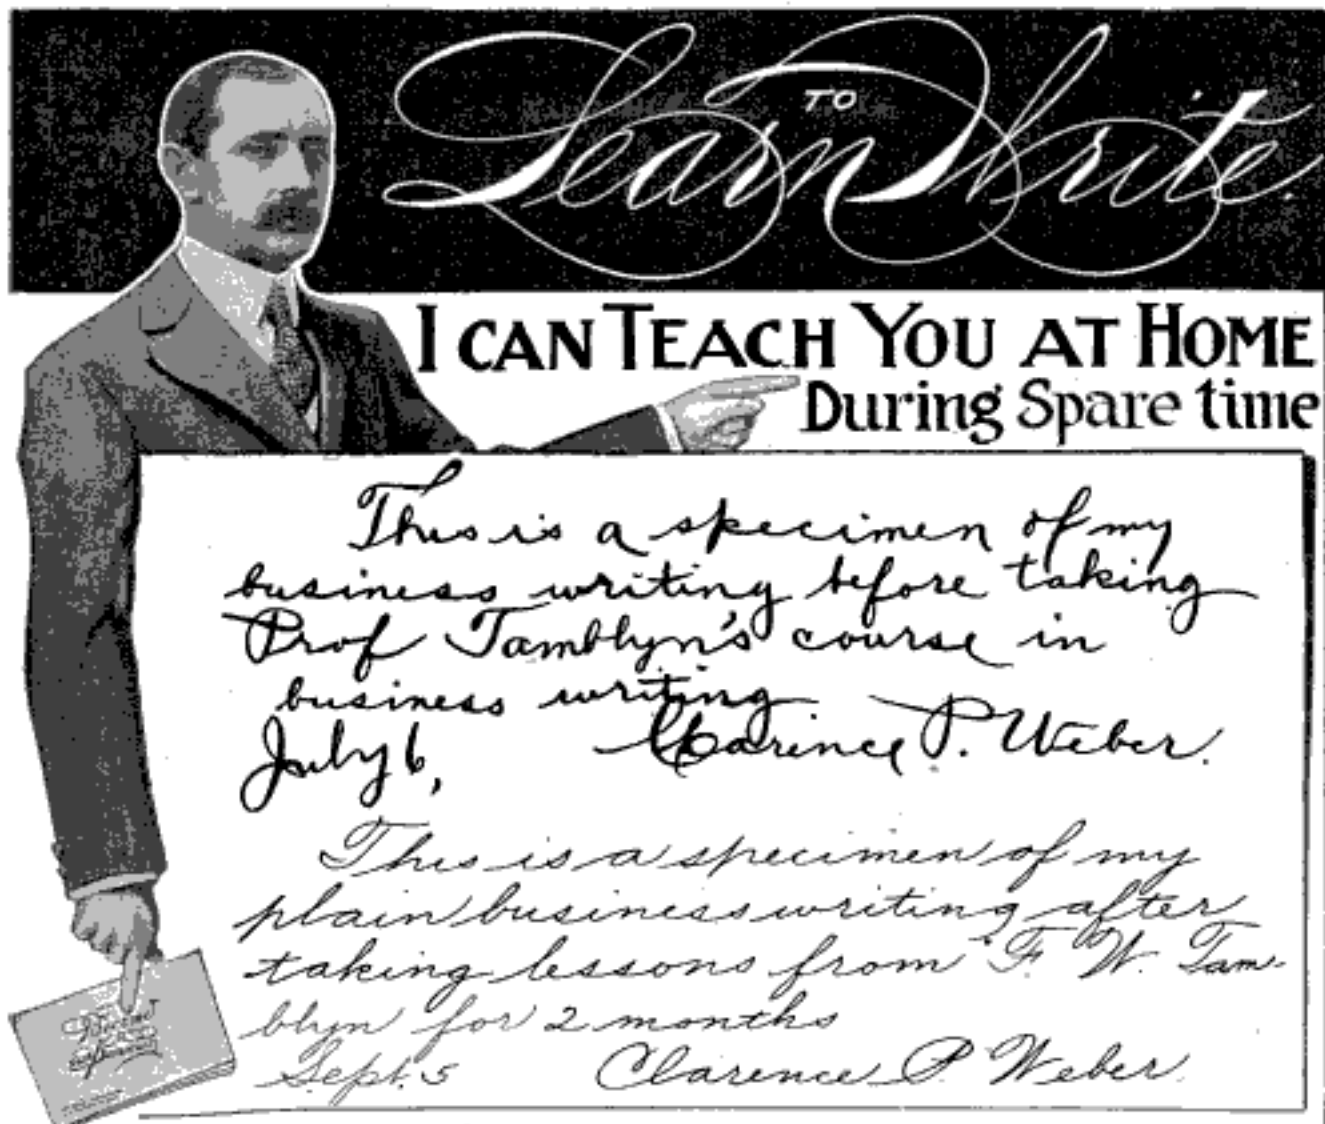 Learn to Write.
I CAN TEACH YOU AT HOME
During Spare time
This is a specimen of my
business writing before taking
Prof Tamblyn's course in
business writing
July 6, Clarence P. Weber.
This is a specimen of my
plain business writing after
taking lessons from F. W. Tam-
blyn for 2 months
Sept. 5 Clarence P Weber